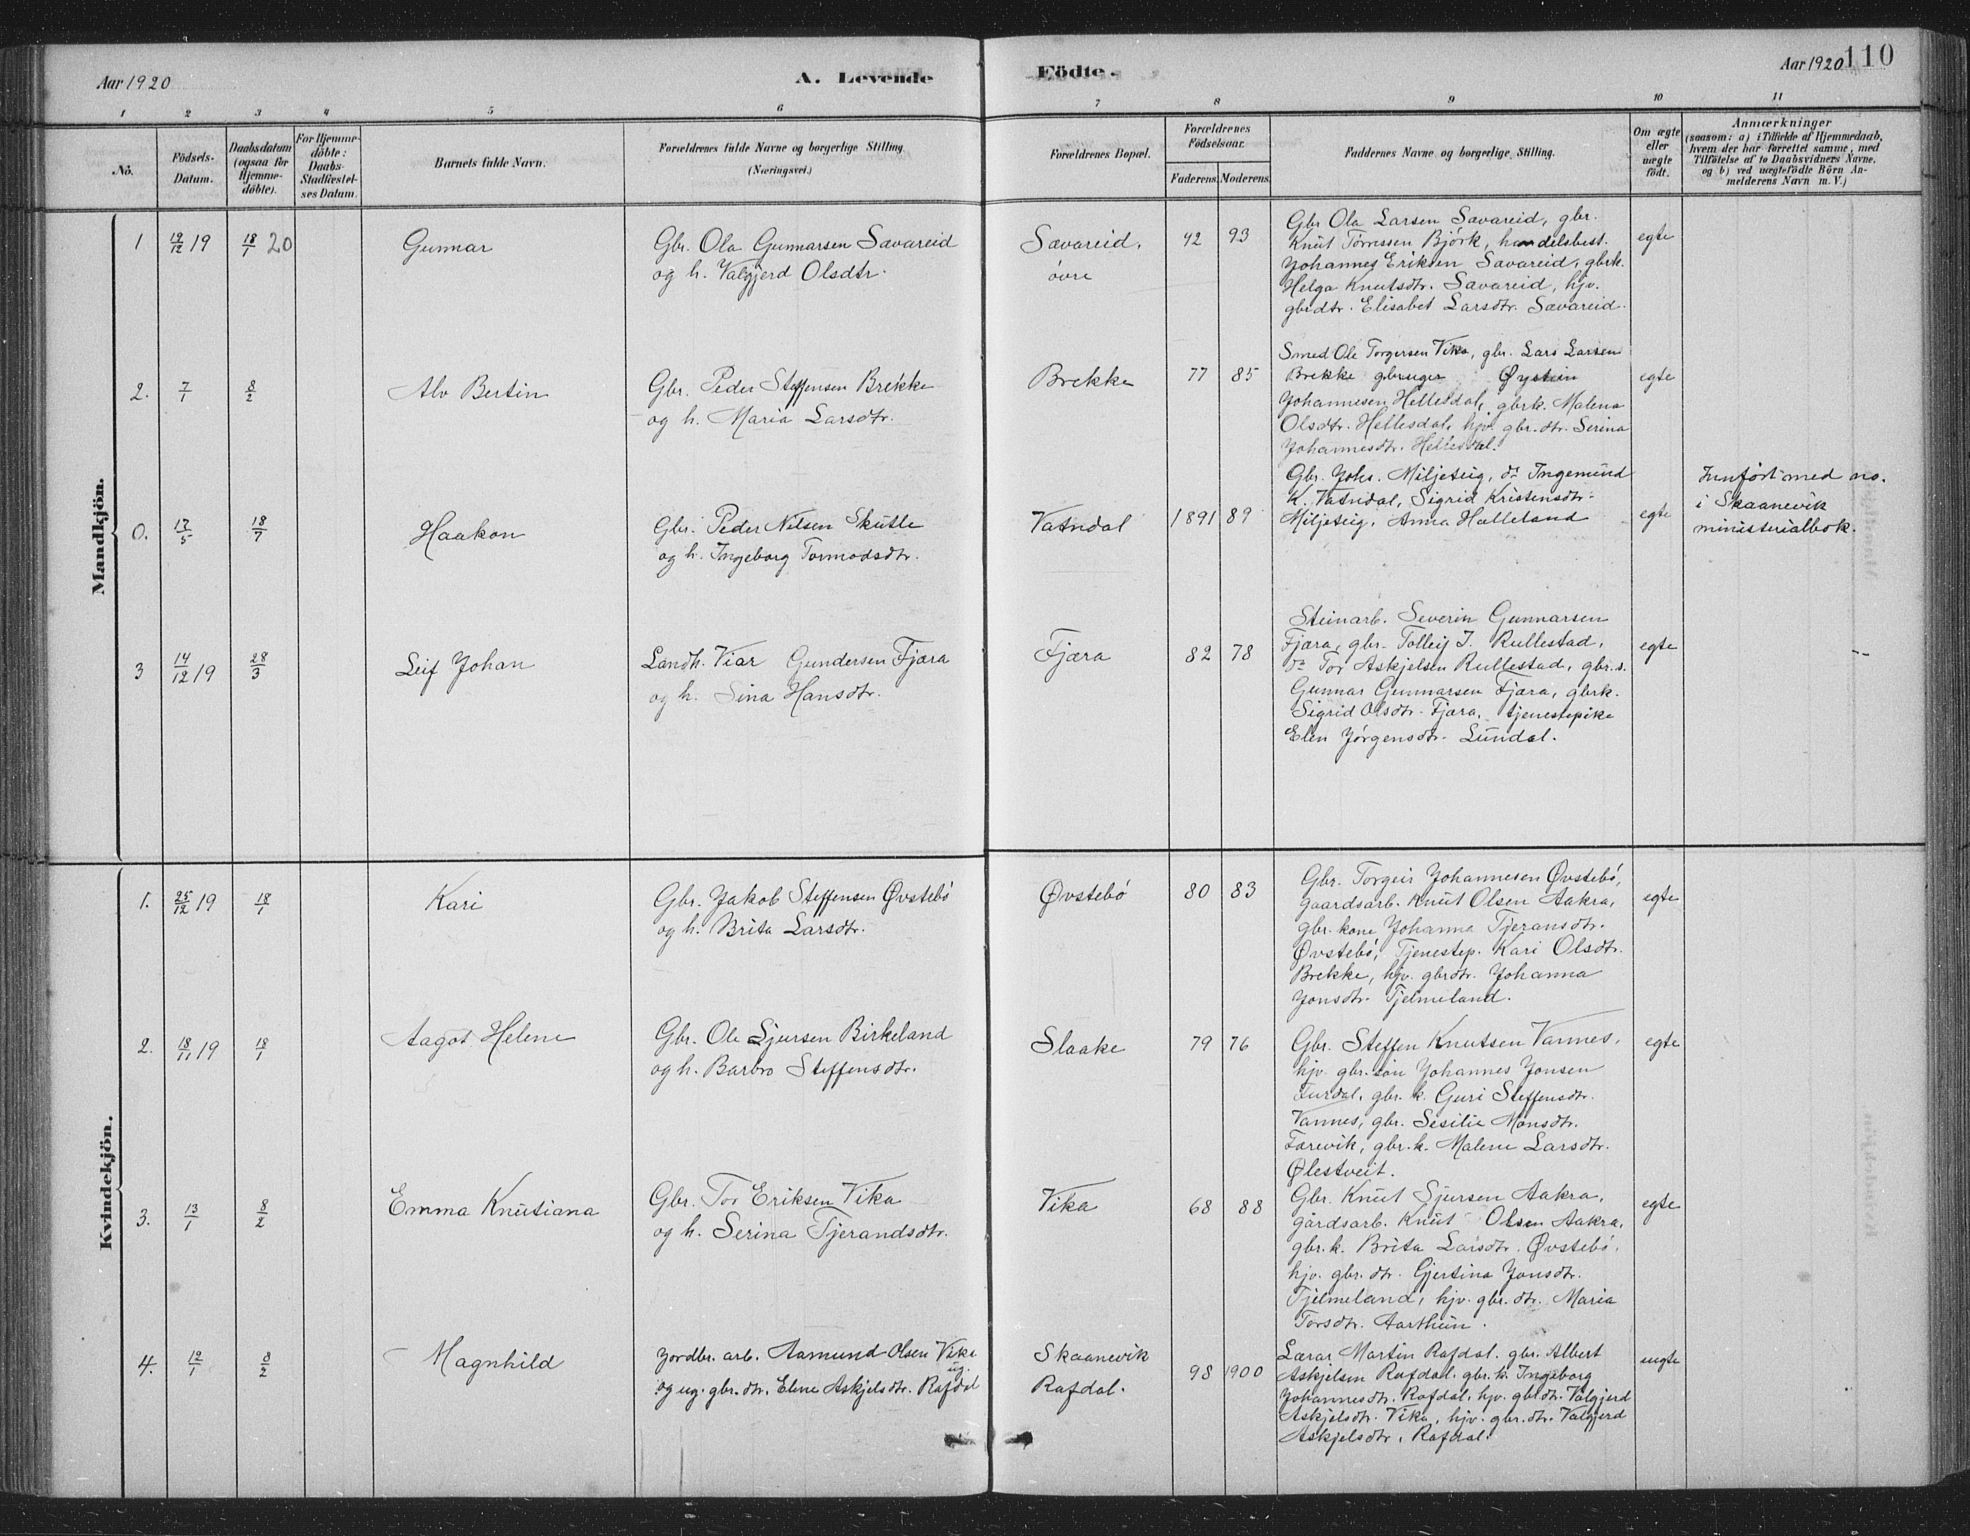 Aar 1920
A. Levende
Födte.
Aar 1920
110
1 2 3 4 5 6 7 8 9 10 11
No.
Födsels-
Datum.
Daabsdatum
(ogsaa for
Hjemme-
döbte).
For Hjemme-
döbte:
Daabs-
Stadfæstel-
ses Datum.
Barnets fulde Navn.
Forældrenes fulde Navne og borgerlige Stilling
(Næringsvei.)
Forældrenes Bopæl.
Forældrenes
Födselsaar.
Faderens. Moderens.
Faddernes Navne og borgerlige Stilling.
Om ægte
eller
uægte
födt.
Anmærkninger
(saasom: a) i Tilfælde af Hjemmedaab,
hvem der har forrettet samme, med
Tilföielse af to Daabsvidners Navne,
og b) ved uægtefödte Börn An-
melderens Navn m. V.)
Mandkjön.
1 19/12 19 18/1 20
Gunnar
Gbr. Ola Gunnarsen Sævareid
og h. Valgjerd Olsdtr.
Sævareid,
övre
42 93
Gbr. Ola Larsen Sævareid, gbr.
Knut Tørressen Bjørk, handelsbest.
Johannes Eriksen Sævareid, gbrk.
Helga Knutsdtr. Sævareid, hjv.
gbrdtr. Elisabet Larsdtr. Sævareid.
egte
2. 7/1 8/2
Alv Bertin
Gbr. Peder Steffensen Brekke
og h. Maria Larsdtr.
Brekke
77 85
Smed Ole Torgersen Vika, gbr. Lars Larsen
Brekke gbruger Øystein
Johannesen Hellesdal, gbrk. Malena
Olsdtr. Hellesdal, hjv. gbr.dtr. Serina
Johannesdtr. Hellesdal.
egte
0. 17/5 18/7
Haakon
Gbr. Peder Nilsen Skutle
og h. Ingeborg Tormodsdtr.
Vatndal
1891 89
Gbr. Johs. Miljeteig, do Ingemund
K. Vatndal, Sigrid Kristensdtr.
Miljeteig, Anna Hælleland
egte
Innført med no.
i Skaanevik
ministerialbok.
3 14/12 19 28/3
Leif Johan
Landh. Viar Gundersen Fjæra
og h. Sina Hansdtr.
Fjæra
82 78
Steinarb. Severin Gunnarsen
Fjæra, gbr. Tolleif J. Rullestad,
do Tor Askjelsen Rullestad, gbr.s.
Gunnar Gunnarsen Fjæra, gbrk.
Sigrid Olsdtr. Fjæra, tjenestepike
Elen Jørgensdtr. Lundal.
egte
Kvindekjön.
1. 25/12 19 18/1
Kari
Gbr. Jakob Steffensen Øvstebö
og h. Brita Larsdtr.
Øvstebö
80 83
Gbr. Torgeir Johannesen Øvstebö,
gaardsarb. Knut Olsen Aakra,
gbr. kone Johanna Tjeransdtr.
Øvstebö, Tjenestep. Kari Olsdtr.
Brekke, hjv. gbrdtr. Johanna
Jonsdtr. Tjelmeland.
egte
2. 18/11 19 18/1
Aagot Helene
Gbr. Ole Sjursen Birkeland
og h. Barbro Steffensdtr.
Slaake
79 76
Gbr. Steffen Knutsen Vannes,
hjv. gbr. søn Johannes Jonsen
Furdal, gbr. k. Guri Steffensdtr.
Vannes, gbr. Sesilie Monsdtr.
Færevik, gbr. k. Malene Larsdtr.
Ølestveit.
egte
3. 13/1 8/2
Emma Knutiana
Gbr. Tor Eriksen Vika
og h. Serina Tjerandsdtr.
Vika
68 88
Gbr. Knut Sjursen Aakra,
gårdsarb. Knut Olsen Aakra,
gbr.k. Brita Larsdtr. Øvstebö,
hjv. gbr. dtr. Gjertina Jonsdtr.
Tjelmeland, hjv. gbr. dtr. Maria
Torsdtr. Aarthun.
egte
4. 12/1 8/2
Magnhild
Jordbr. arb. Aamund Olsen Vike
ug.
og ug. gbr. dtr. Elene Askjelsdtr. Rafdal
Skaanevik
Rafdal.
98 1900
Lærar Martin Rafdal, gbr. Albert
Askjelsen Rafdal, gbr. k. Ingeborg
Johannesdtr. Rafdal, hjv. gbr.dtr. Valgjerd
Askjelsdtr. Vika, hjv. gbr. dtr. Valgjerd
Askjelsdtr. Rafdal.
uegte